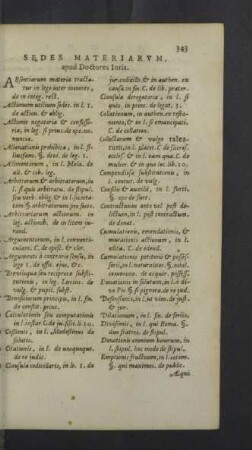 343
SEDES MATERIARVM,
apud Doctores Iuris.
ABsentiarum materia tracta-
tur in lege inter monere,
de re integ. rest.
Actionum utilium sedes. in l. 1.
de action. & oblig.
Actionis negatoria & confesso-
ria, in leg. si prius. de ope. no.
nuncia.
Alienationis prohibita, in l. fi-
§. divi. de leg. 1.
Alimentorum, in l. Mela. de
ali. & cib. leg.
Arbitrorum & arbitratorum, in
l. si quis arbitratu. de stipul.
seu verb. oblig. & in l. societa-
tem, §. arbitrorum. pro socio.
Arbitrariarum actionum. in
leg. actionum. de in litem iu-
rand.
Argumentorum, in l. conventi-
culam. C. de episc. & cler.
Argumenti à contrario sensu, in
leg. 1. de offi. ejus, &c.
Breviloqua seu reciproca substi-
tutionis, in leg. Lucius. de
vulg. & pupil. subst.
Brevissimorum principum, in l. fin.
de constit. princ.
Calculationis seu computationis
in l. de jusfis. li. 10.
Cessionis, in l.
fidutis.
Citationis, in l. de unoquoque.
de re judic.
Clausula codicillaris, in l. 1. de
jur. codicill. & in authen. ex
causa in fin. C. de lib. prater.
Clausula derogatoria, in l. si
quis, in princ. de legat. 3.
Collationum, in authen. ex testa-
mento, & in l. si emancipati,
C. de collation.
Compendiosa substitutionis, in
l. centur. de vulg.
Consilii & auxilii, in l. furti,
§. ope de furt.
Contractuum ante vel post de-
lictum, in l. post contractum.
de donat.
Cumulationis, emendationis, &
mutationis actionum, in l.
edita. C. de edend.
Cumulationis petitorii & posses-
sorii, in l. naturaliter. §. nihil
commune. de acquir. possess.
Donationis in solutum, in l. à di-
vo Pio. §. si pignora. de re jud.
Defensionis, in l. ut vim. de just.
& jur.
Dilationum, in l. fin. de feriis.
Divisionis, in l. qui Roma. §.
duo fratres. de stipul.
Donationis omnium bonorum, in
l. stipul. hoc modo. de stipul.
Emptionis fructuum, in l. item.
§. qui maximos. de public.
Æqui